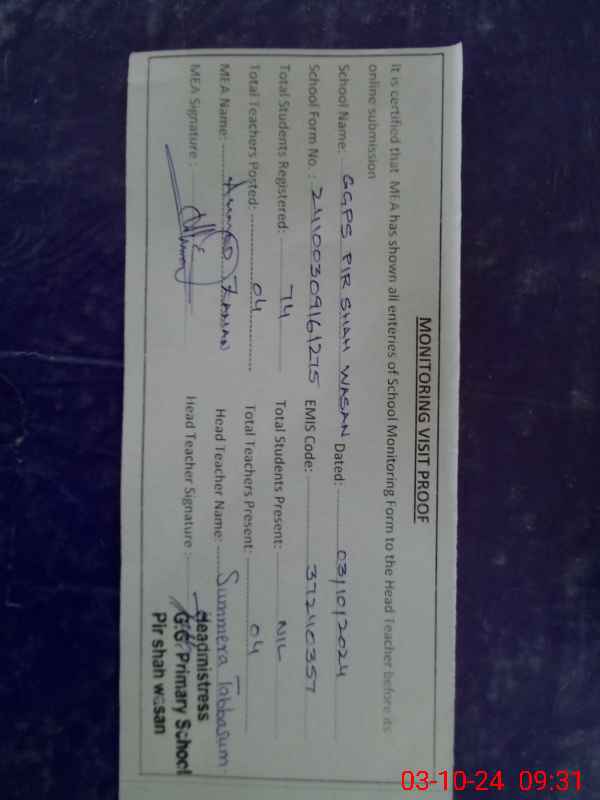 MONITORING VISIT PROOF
It is certified that MEA has shown all enteries of School Monitoring Form to the Head Teacher before its
online submission
School Name: GGPS PIR SHAH WASAN Dated: 03/10/2024
School Form No.: 24100309161275 EMIS Code: 37240357
Total Students Registered: 74 Total Students Present: NIL
Total Teachers Posted: 04 Total Teachers Present: 04
MEA Name: Head Teacher Name: Summera Tabbasum
MEA Signature : Head Teacher Signature :
Headmistress
G.G. Primary School
Pir shah wasan
03-10-24 09:31